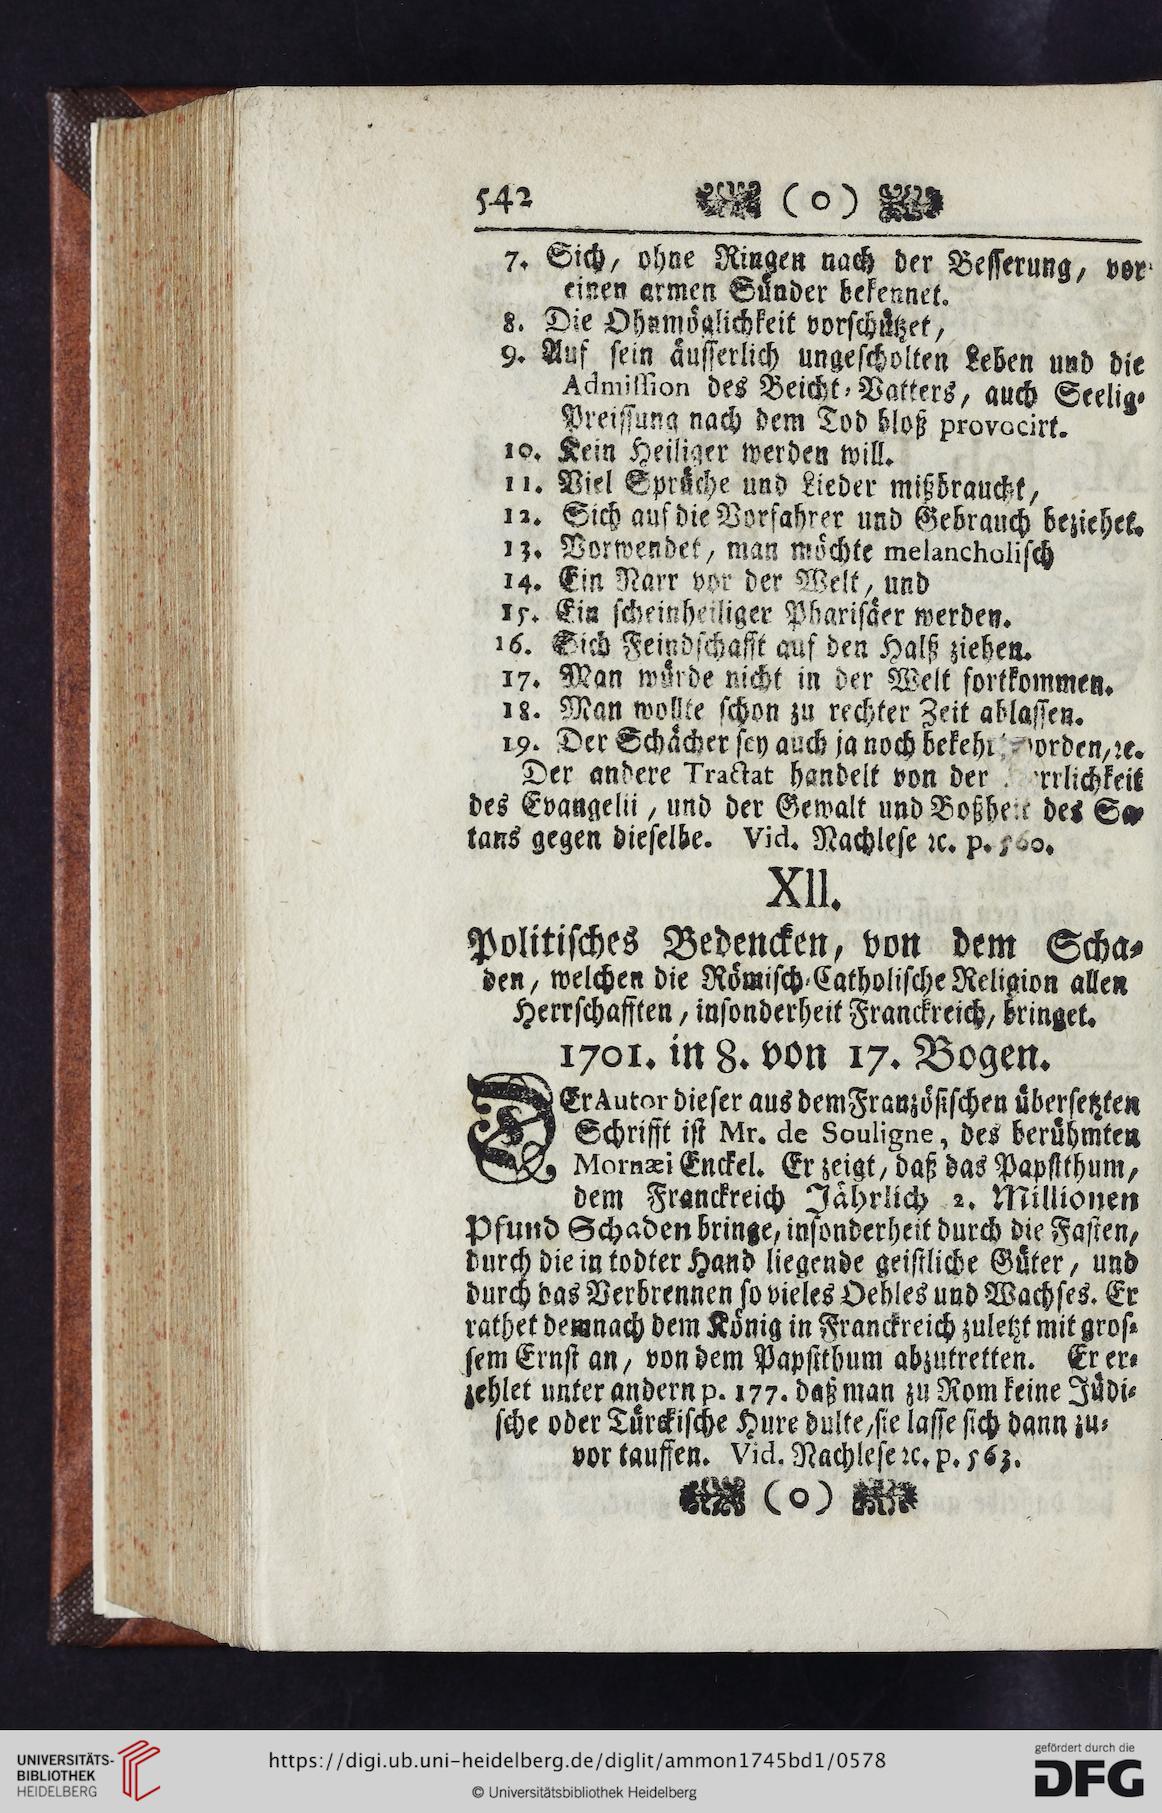 542 (o)
7. Sich, ohne Ringen nach der Besserung, vor
einen armen Sünder bekennet.
8. Die Ohnmöglichkeit vorschützet,
9. Auf sein äusserlich ungescholten Leben und die
Admission des Beicht-Vatters, auch Seelig-
Preissung nach dem Tod bloß provocirt.
10. Kein Heiliger werden will.
11. Viel Sprüche und Lieder mißbraucht,
12. Sich auf die Vorfahrer und Gebrauch beziehet.
13. Vorwendet, man möchte melancholisch
14. Ein Narr vor der Welt, und
15. Ein scheinheiliger Pharisäer werden.
16. Sich Feindschafft auf den Halß ziehen.
17. Man würde nicht in der Welt fortkommen.
18. Man wollte schon zu rechter Zeit ablassen.
19. Der Schächer sey auch ja noch bekehrt worden, ꝛc.
Der andere Tractat handelt von der
des Evangelii, und der Gewalt und Boßheit des Sa-
tans gegen dieselbe. Vid. Nachlese ꝛc. p. 560.
XII.
Politisches Bedencken, von dem Scha-
den, welchen die Römisch-Catholische Religion allen
Herrschafften, insonderheit Franckreich, bringet.
1701. in 8. von 17. Bogen.
DEr Autor dieser aus dem Französischen übersetzten
Schrifft ist Mr. de Souligne, des berühmten
Mornæi Enckel. Er zeigt, daß das Papstthum,
dem Franckreich Jährlich 2. Millionen
Pfund Schaden bringe, insonderheit durch die Fasten,
durch die in todter Hand liegende geistliche Güter, und
durch das Verbrennen so vieles Oehles und Wachses. Er
rathet demnach dem König in Franckreich zuletzt mit gros-
sem Ernst an, von dem Papstthum abzutretten. Er er-
zehlet unter andern p. 177. daß man zu Rom keine Jüdi-
sche oder Türckische Hure dulte, sie lasse sich dann zu-
vor tauffen. Vid. Nachlese ꝛc. p. 563.
(o)
UNIVERSITÄTS-
BIBLIOTHEK
HEIDELBERG
https://digi.ub.uni-heidelberg.de/diglit/ammon1745bd1/0578
© Universitätsbibliothek Heidelberg
gefördert durch die
DFG